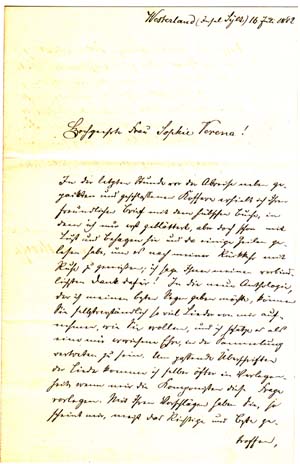 Westerland (Insel Sylt) 16 Juli 1882
Hochgeehrte Frau Sophie Verena!
In der letzten Stunde vor der Abreise neben ge-
packten und geschlossenen Koffern erhielt ich Ihren
freundlichen Brief mit dem hübschen Buche, in
dem ich nur erst geblättert, aber doch schon mit
Lust und Behagen hie und da einige Zeilen ge-
lesen habe, um es nach meiner Rückkehr mit
Ruhe zu genießen; ich sage Ihnen meinen verbind-
lichsten Dank dafür! In die neue Anthologie,
der ich meinen besten Segen geben möchte, können
Sie selbstverständlich so viel Lieder von mir auf-
nehmen, wie Sie wollen, und ich schätze es als
eine mir erwiesene Ehre, in der Sammlung
vertreten zu sein. Um passende Überschriften
der Lieder komme ich selber öfter in Verlegen-
heit, wenn mir die Komponisten diese Frage
vorlegen. Mit Ihren Vorschlägen haben Sie, so
scheint mir, meist das Richtige und Beste ge-
troffen,